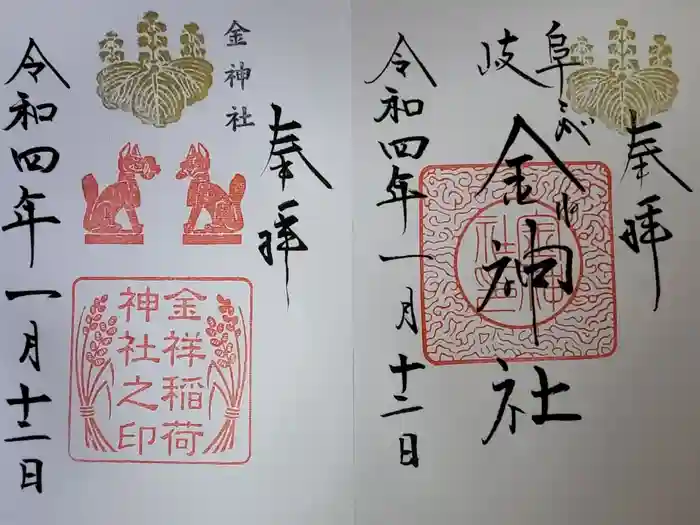 奉拝
岐阜
こがね
金神社
令和四年一月十二日
奉拝
金神社
金祥稲荷
神社之印
令和四年一月十二日